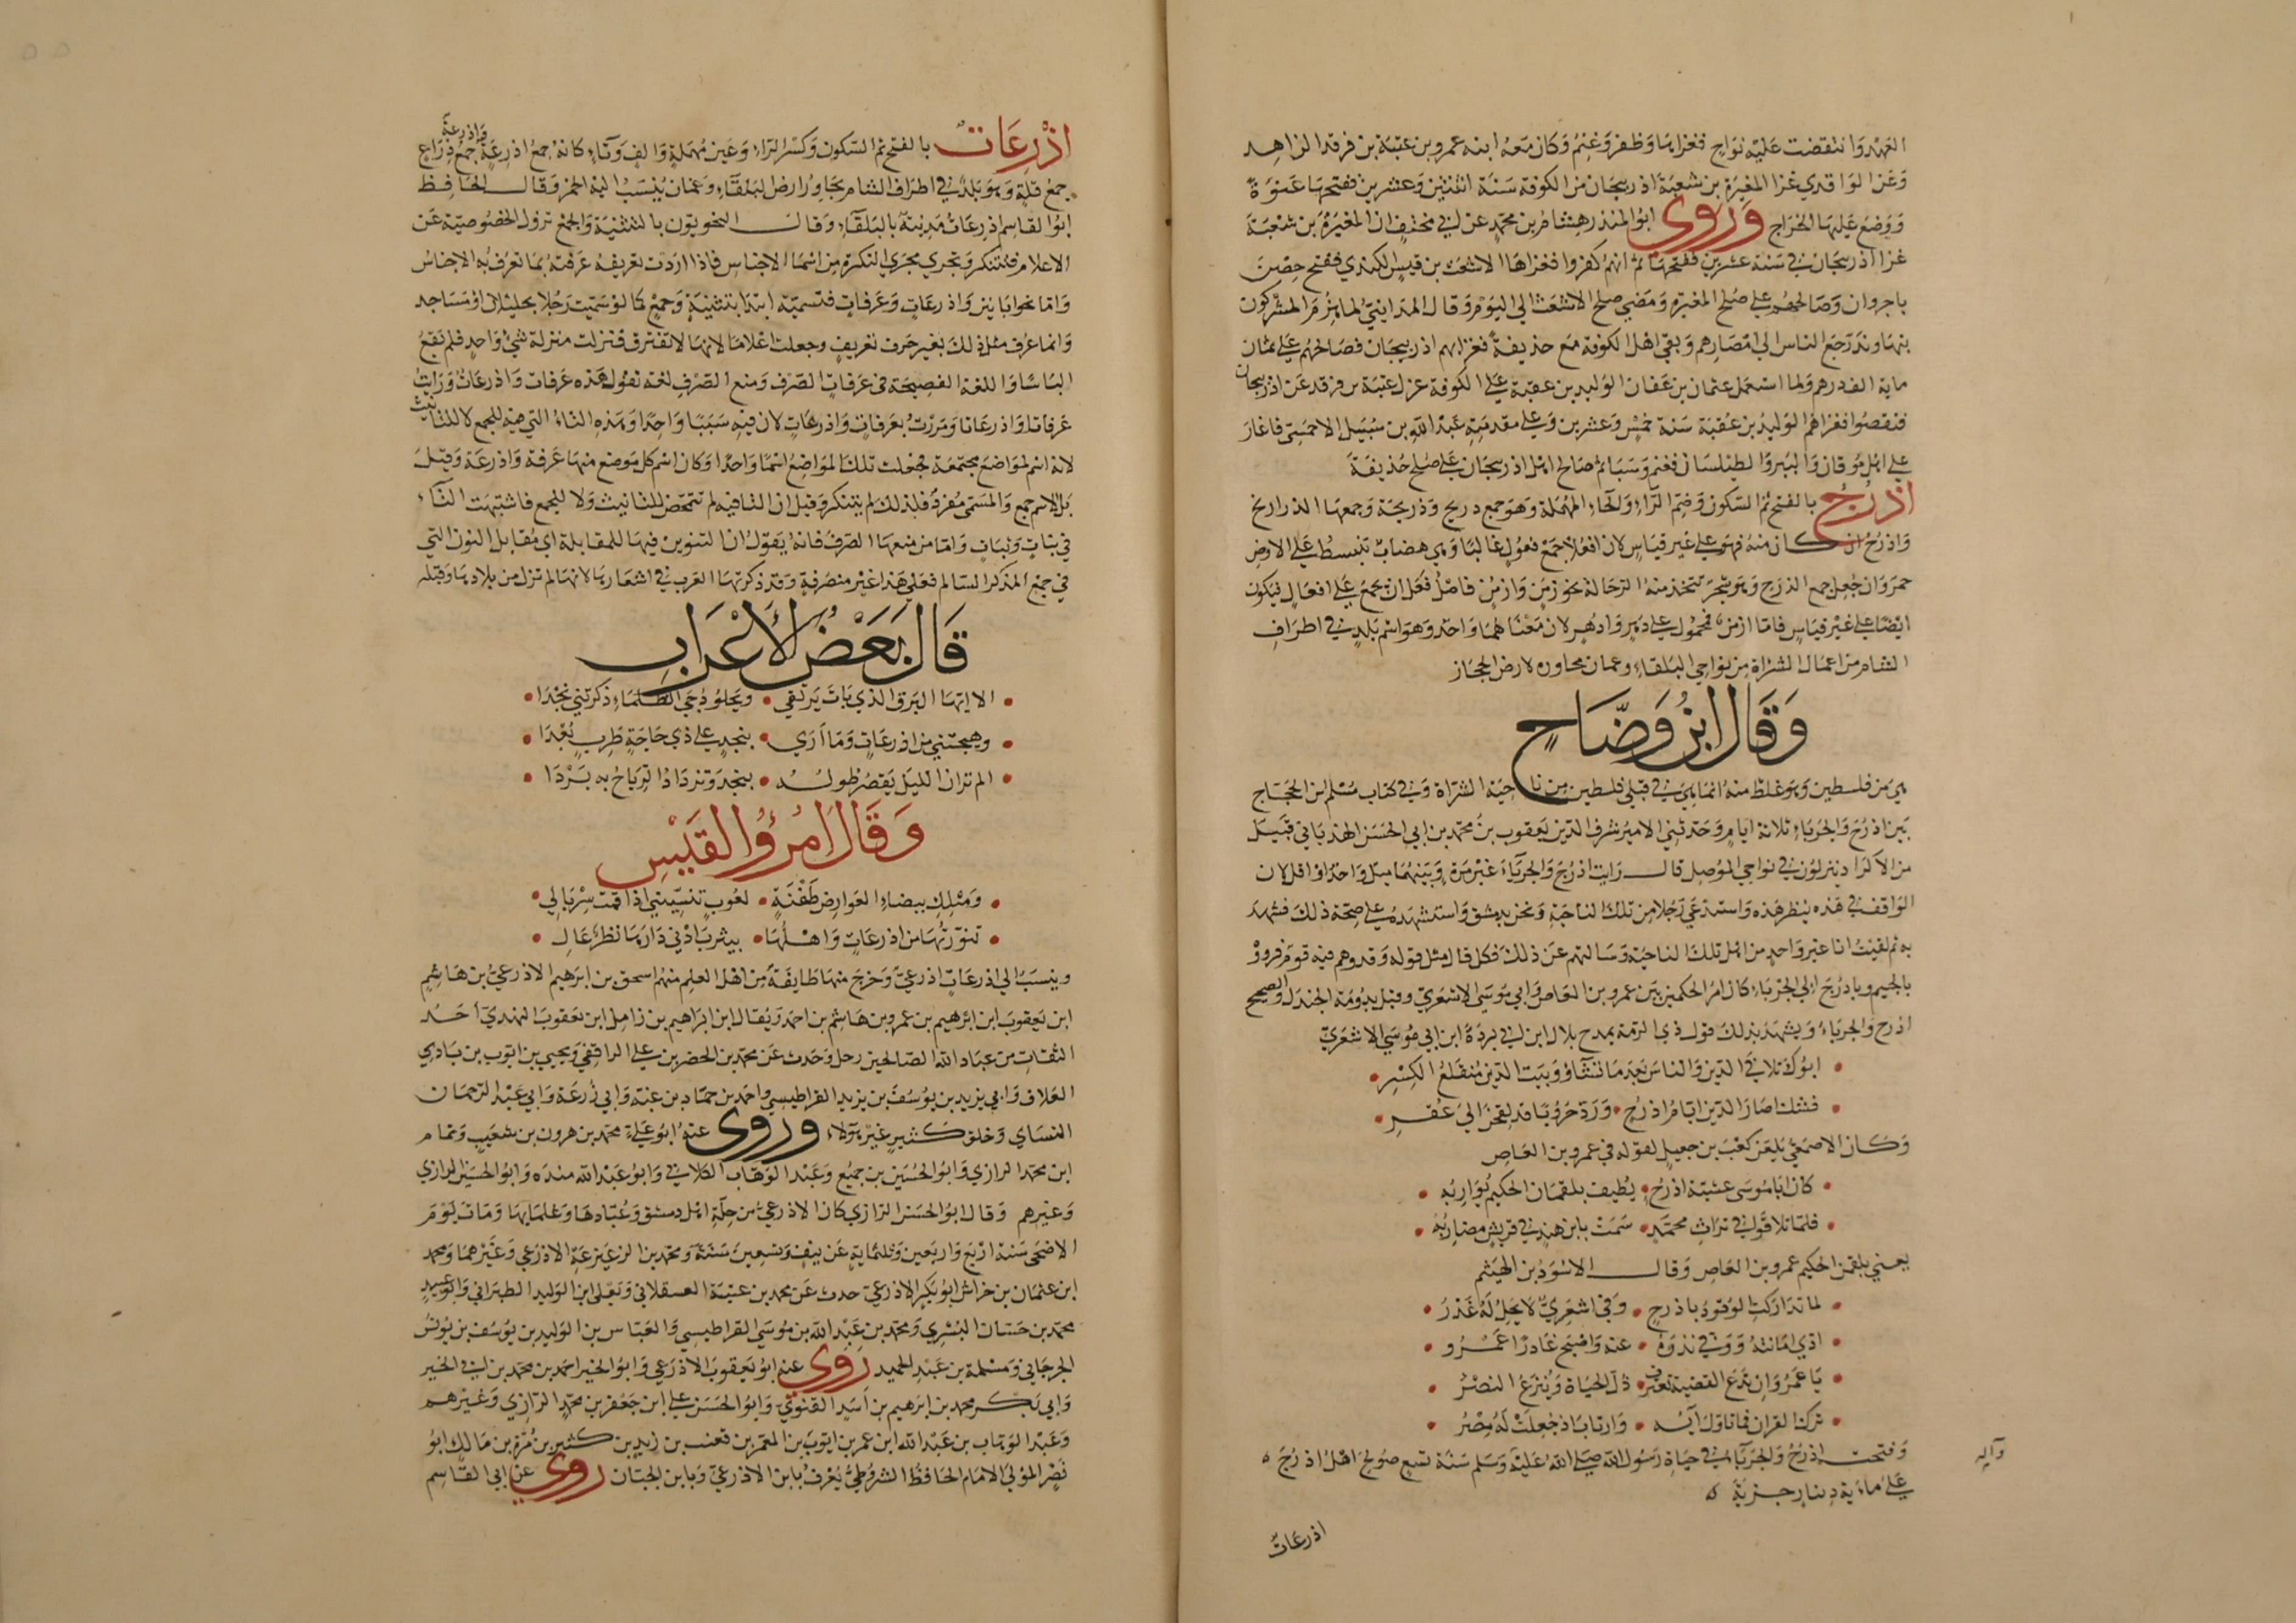 العهد وانتقضت عليه نواح فغزاها وظفر وغنم وكان معه ابنه عمرو بن عتبة بن فرقد الزاهد
وعن الواقدي غزا المغيرة بن شعبة اذربيجان من الكوفة سنة اثنتين وعشرين ففتحها عنوة
ووضع عليها الخراج وروى ابو المنذر هشام بن محمد عن ابي مخنف ان المغيرة بن شعبة
غزا اذربيجان في سنة عشرين ففتحها ثم انهم كفروا فغزاها الاشعث بن قيس الكندي ففتح حصن
باجروان وصالحهم على صلح المغيرة ومضى صلح الاشعث الى اليوم وقال المدايني لما هزم المشركون
بنهاوند رجع الناس الى امصارهم وبقي اهل الكوفة مع حذيفة فغزا بهم اذربيجان فصالحهم على ثمان
ماية الف درهم ولما استعمل عثمان بن عفان الوليد بن عقبة على الكوفة عزل عتبة بن فرقد عن اذربيجان
فنقضوا فغزاهم الوليد بن عقبة سنة خمس وعشرين وعلى مقدمته عبد الله بن شبيل الاحمسي فاغار
على اهل موقان والببر والطيلسان فغنم وسبا ثم صالح اهل اذربيجان على صلح حذيفة
اذرح بالفتح ثم السكون وضم الراء والحاء المهملة وهو جمع دريح وذريحة وجمعها الذرارايح
واذرح ان كان منه فهو على غير قياس لان افعلا جمع فعول غالبا وهي هضاب تنبسط على الارض
حمر وان جعل جمع الذرح وهو شجر تتخذ منه الرحالة نحو زمن وازمن فاصل فعل ان يجمع على افعال فيكون
ايضا على غير قياس فاما ازمن فمحمول على دهر وادهر لان معناهما واحد وهو اسم بلد في اطراف
الشام من اعمال الشراة من نواحي البلقاء وعمان مجاوره لارض الحجاز
وقال ابن وضاح
هي من فلسطين وهو غلط منه انما هي في قبلي فلسطين من ناحية الشراة وفي كتاب مسلم ابن الحجاج
بين اذرح والجرباء ثلاثة ايام وحدثني الامير شرف الدين يعقوب بن محمد بن ابي الحسن الهذباني قبيل
من الاكراد ينزلون في نواحي الموصل قال رايت اذرح والجرباء غير مرة وبينهما ميل واحد او اقل لان
الواقف في هذه ينظر هذه واستدعى رجلا من تلك الناحية ونحن بدمشق واستشهد على صحة ذلك فشهد
به ثم لقيت انا غير واحد من اهل تلك الناحية وسالتهم عن ذلك فكل قال مثل قوله وقد وهم فيه قوم فرووه
بالجيم وباذرح الى الجرباء كان امر الحكمين بين عمرو بن العاص وابي موسى الاشعري وقيل بدومة الجندل والصحيح
اذرح والجرباء ويشهد بذلك قول ذي الرمة يمدح بلال ابن ابي بردة ابن ابي موسى الاشعري
ابوك تلافى الدين والناس بعد ما تشاؤ وبيت الدين منقلع الكسر
فشد اصار الدين ايام اذرح ورد حروبا قد لقحن الى عقر
وكان الاصمعي يلعن كعب بن جعيل لقوله في عمرو بن العاص
كان ابا موسى عشية اذرح يطيف بلقمان الحكيم يواربه
فلما تلاقوا في تراث محمد سمت بابن هند في قريش مضاربه
يعني بلقمن الحكيم عمرو بن العاص وقال الاسود بن الهيثم
لما تداركت الوفود باذرح وفي اشعري لا يحل له غدر
ادى امانته ووفى نذره عنه واصبح غادرا عمرو
يا عمرو ان تدع القضية تعترف ذل الحياة وينزع النصر
ترك القران فما تاول اية وارتاب اذ جعلت له مصر
وفتحت اذرح والجرباء في حياة رسول الله صلى الله عليه وسلم سنة تسع صولح اهل اذرح
واله
على ماية دينار جزية
اذرعات
اذرعات بالفتح ثم السكون وكسر الراء وعين مهملة والف وتاء كانه جمع اذرعة جمع ذراع
واذرعة
جمع قلة وهو بلد في اطراف الشام يجاور ارض البلقاء وعمان ينسب اليه الخمر وقال الحافظ
ابو القاسم اذرعات مدينة بالبلقاء وقال النحويون بالتثنية والجمع تزول الخصوصية عن
الاعلام فتتنكر وتجري مجرى النكرة من اسما الاجناس فاذا اردت تعريفه عرفته بما تعرف به الاجناس
واما نحو ابانين واذرعات وعرفات فتسميته ابتدا بتثنية وجمع كما لو سميت رجلا بخليلان او مساجد
وانما عرف مثل ذلك بغير حرف تعريف وجعلت اعلاما لانها لا تفترق فنزلت منزلة شي واحد فلم يقع
الباسا واللغة الفصيحة في عرفات الصرف ومنع الصرف لغة تقول هذه عرفات واذرعات ورايت
عرفاتا واذرعاتا ومررت بعرفات واذرعات لان فيه سببا واحدا وهذه التاء التي فيه للجمع لا للتانيث
لانه اسم لمواضع مجتمعة فجعلت تلك المواضع اسما واحدا وكان اسم كل موضع منها عرفة واذرعة وقيل
بل الاسم جمع والمسمى مفرد فلذلك لم يتنكر وقيل ان التا فيه لم تتمحض للتانيث ولا للجمع فاشبهت التاء
في بنات وثبات واما من منعها الصرف فانه يقول ان التنوين فيها للمقابلة اي مقابل النون التي
في جمع المذكر السالم فعلى هذا غير منصرفة وقد ذكرتها العرب في اشعارها لانها لم تزل من بلادها وقبله
قال بعض الاعراب
الا ايها البرق الذي بات يرتقي ويجلو دجى الظلماء ذكرتني نجدا
وهيجتني من اذرعات وما ارى بنجد على ذي حاجة طرب بعدا
الم تر ان الليل يقصر طوله بنجد وتزداد الرياح به بردا
وقال امرؤ القيس
ومثلك بيضاء العوارض طفلة لعوب تنسيني اذا قمت سربالي
تنورتها من اذرعات واهلها بيثرب ادنى دارها نظر عال
وينسب الى اذرعات اذرعي وخرج منها طايفة من اهل العلم منهم اسحق بن ابرهيم الاذرعي بن هاشم
ابن يعقوب ابن ابرهيم بن عمرو بن هاشم بن احمد ويقال ابن ابراهيم بن زامل ابن يعقوب النهدي احد
الثقات من عباد الله الصالحين رحل وحدث عن محمد بن الخضر بن علي الرافقي ويحيى بن ايوب بن بادي
العلاف وابي يزيد بن يوسف بن يزيد القراطيسي واحمد بن حماد بن عيينة وابي زرعة وابي عبد الرحمان
النساي وخلق كثير غير هولاء وروى عنه ابو علي محمد بن هرون بن شعيب وتمام
ابن محمد الرازي وابو الحسين بن جميع وعبد الوهاب الكلابي وابو عبد الله منده وابو الحسين الرازي
وغيرهم وقال ابو الحسن الرازي كان الاذرعي من جلة اهل دمشق وعبادها وعلمايها ومات يوم
الاضحى سنة اربع واربعين وثلثماية عن نيف وتسعين سنة ومحمد بن الزعيزعة الاذرعي وغيرهما ومحمد
ابن عثمان بن خراش ابو بكر الاذرعي حدث عن محمد بن عتبة العسقلاني ويعلى ابن الوليد الطبراني وابو عبيد
محمد بن حسان البسري ومحمد بن عبد الله بن موسى القراطيسي والعباس بن الوليد بن يوسف بن يونس
الجرجاني ومسلمة بن عبد الحميد روى عنه ابو يعقوب الاذرعي وابو الخير احمد بن محمد بن ابي الخير
وابي بكر محمد بن ابرهيم بن اسد القنوي وابو الحسن علي ابن جعفر بن محمد الرازي وغيرهم
وعبد الوهاب بن عبد الله ابن عمر بن ايوب بن المعمر بن قعنب بن زيد بن كثير بن مرة بن مالك ابو
نصر المزني الامام الحافظ الشروطي يعرف بابن الاذرعي وبابن الجبان روى عن ابي القاسم